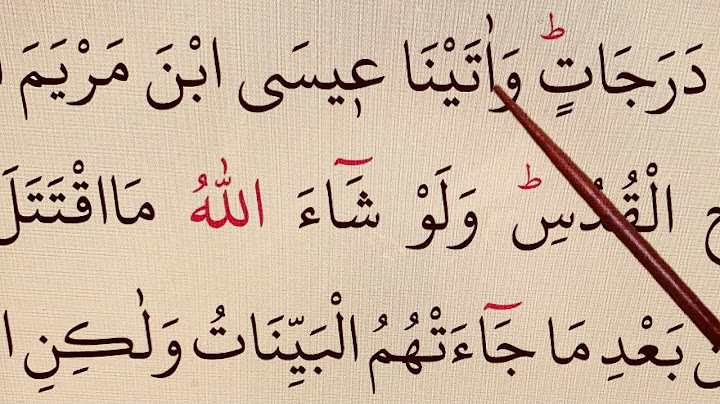 دَرَجَاتٍ ؕ وَاٰتَيْنَا عٖيسَى ابْنَ مَرْيَمَ
الْقُدُسِ ؕ وَلَوْ شَٓاءَ اللّٰهُ مَااقْتَتَلَ
بَعْدِ مَا جَٓاءَتْهُمُ الْبَيِّنَاتُ وَلٰكِنِ